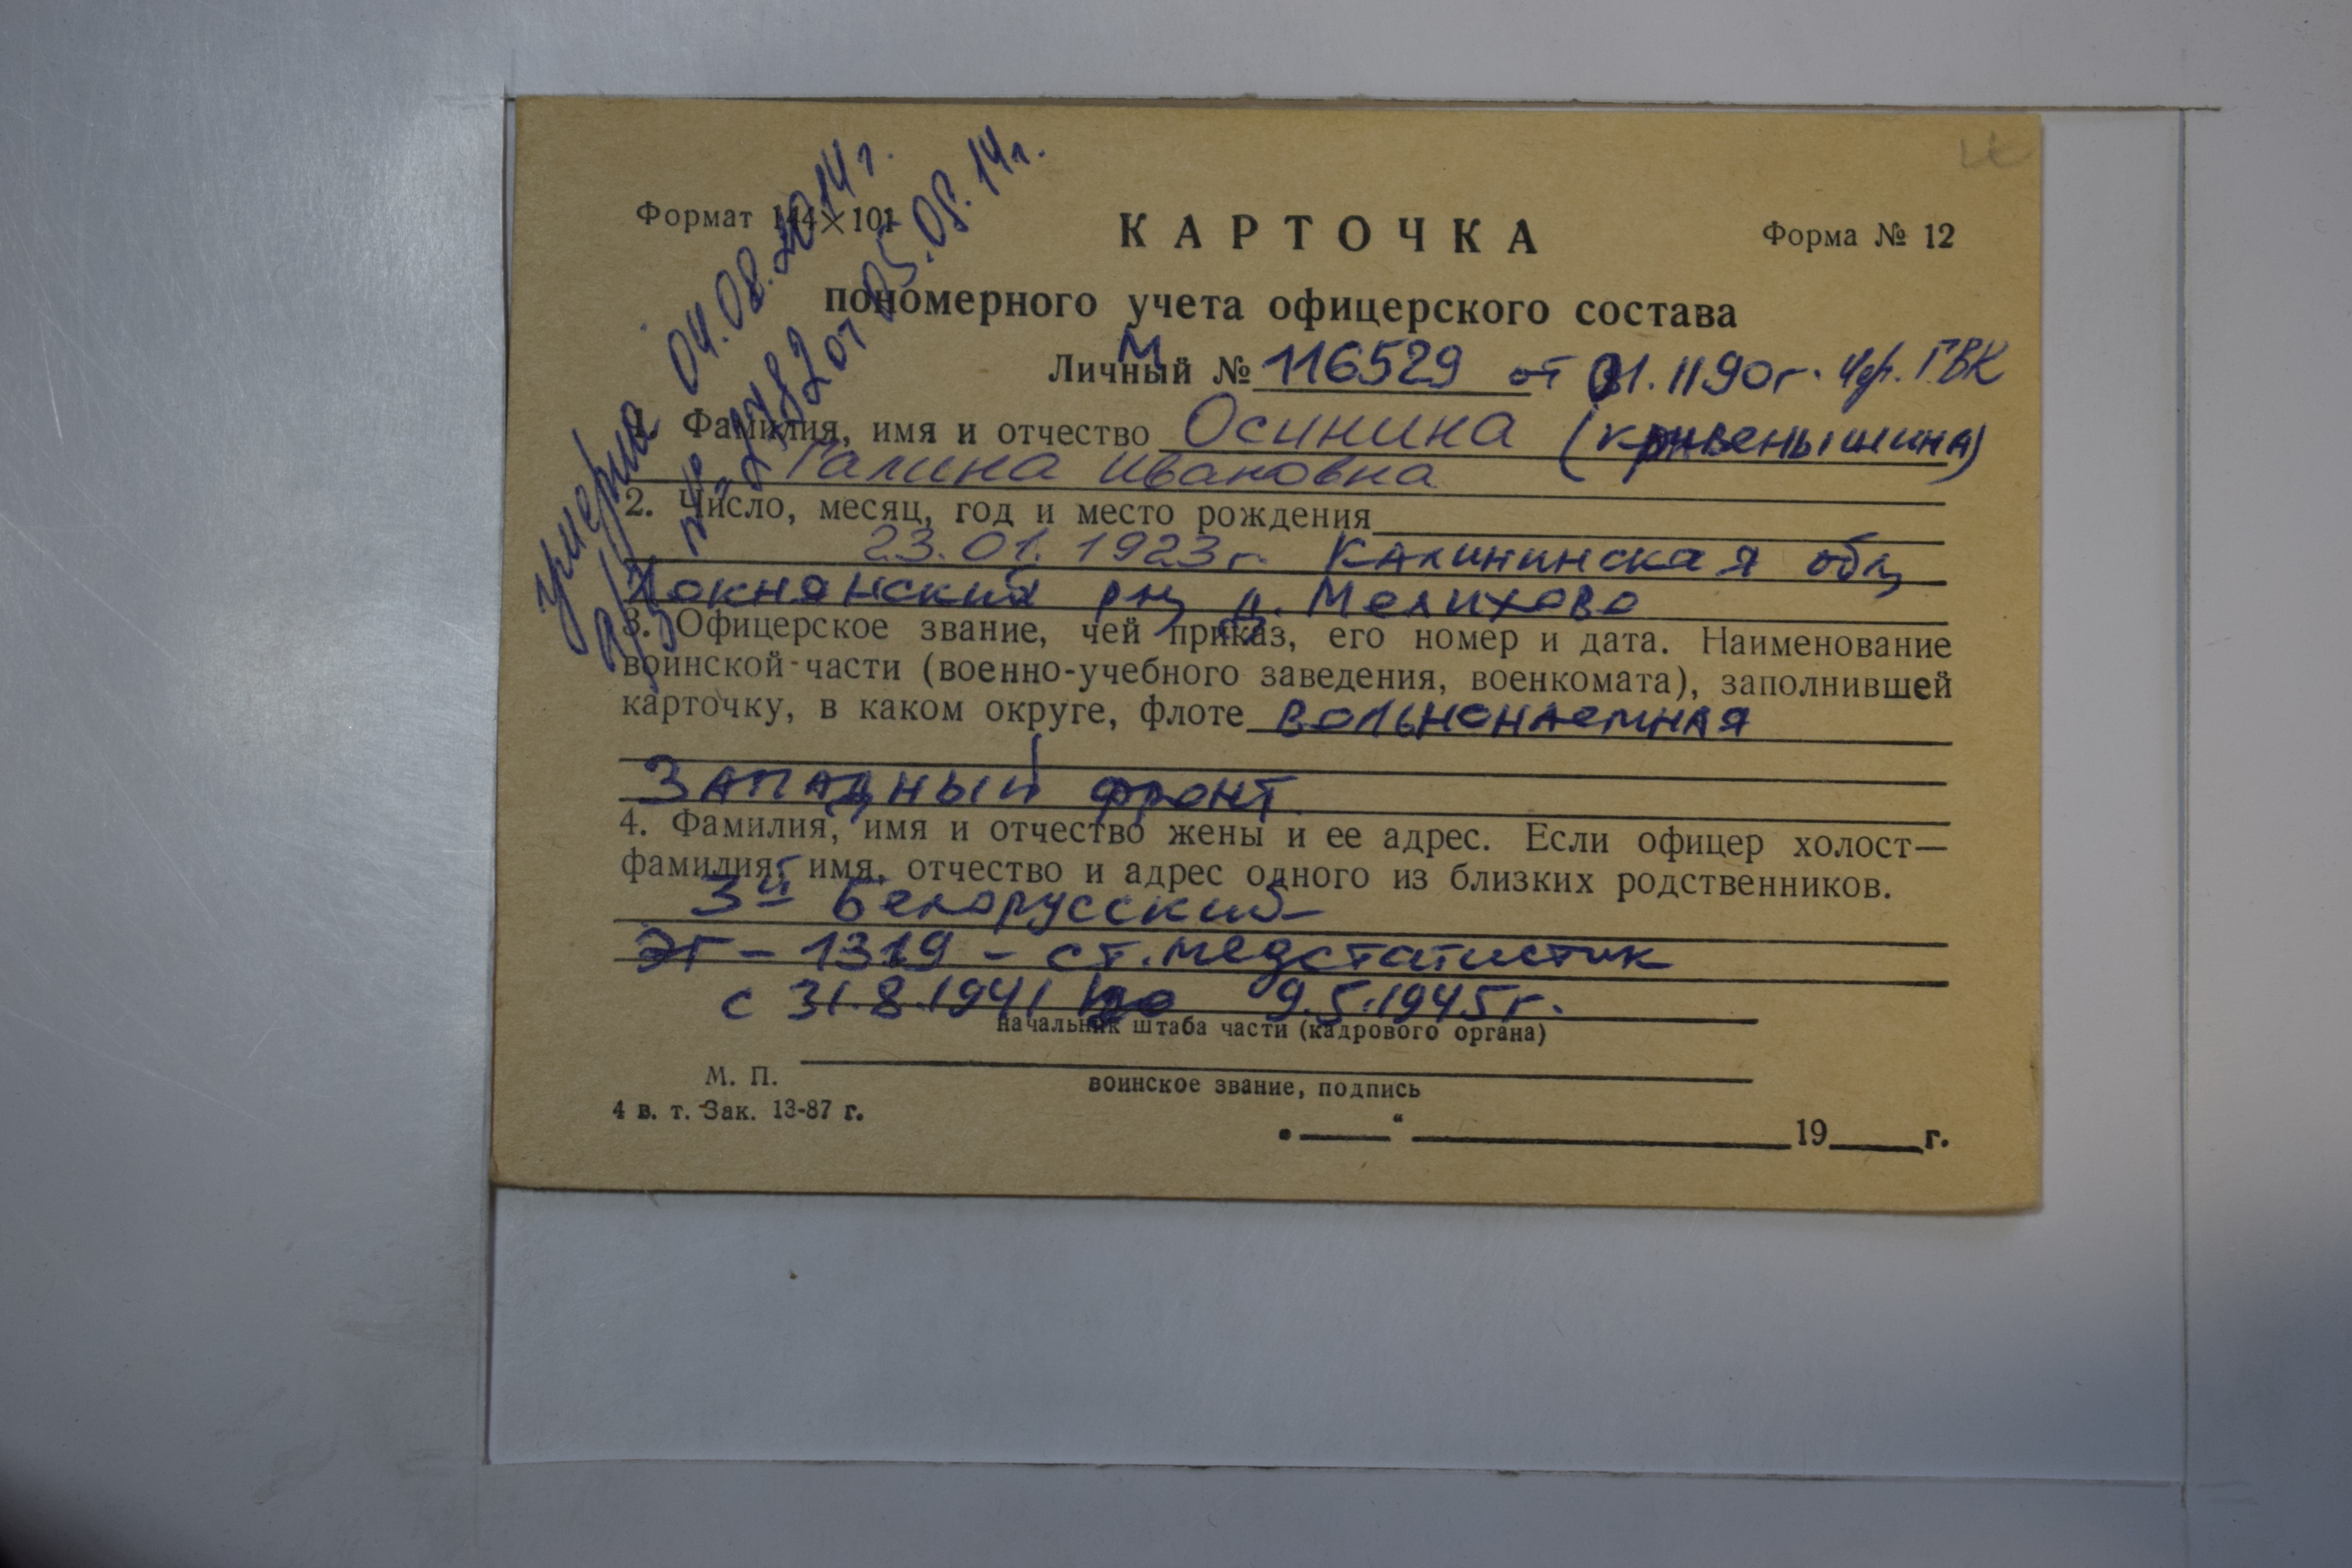 умерла 04.08.2014г.
а/з № 2782 от 05.08.14г.
Формат 144×101
КАРТОЧКА
Форма № 12
пономерного учета офицерского состава
М
Личный № 116529 от 01.11.90г. Чер. ГВК
1. Фамилия, имя и отчество Осинина (Кривенышина)
Галина Ивановна
2. Число, месяц, год и место рождения
23.01.1923г. Калининская обл,
Локнянский рн, д. Мелихово
3. Офицерское звание, чей приказ, его номер и дата. Наименование
воинской части (военно-учебного заведения, военкомата), заполнившей
карточку, в каком округе, флоте вольнонаемная
Западный фронт
4. Фамилия, имя и отчество жены и ее адрес. Если офицер холост—
фамилия, имя, отчество и адрес одного из близких родственников.
3й Белорусский
ЭГ - 1319 - ст. медстатистик
с 31.8.1941 по 9.5.1945г.
начальник штаба части (кадрового органа)
М. П.
воинское звание, подпись
4 в. т. Зак. 13-87 г.
„ “ 19 г.